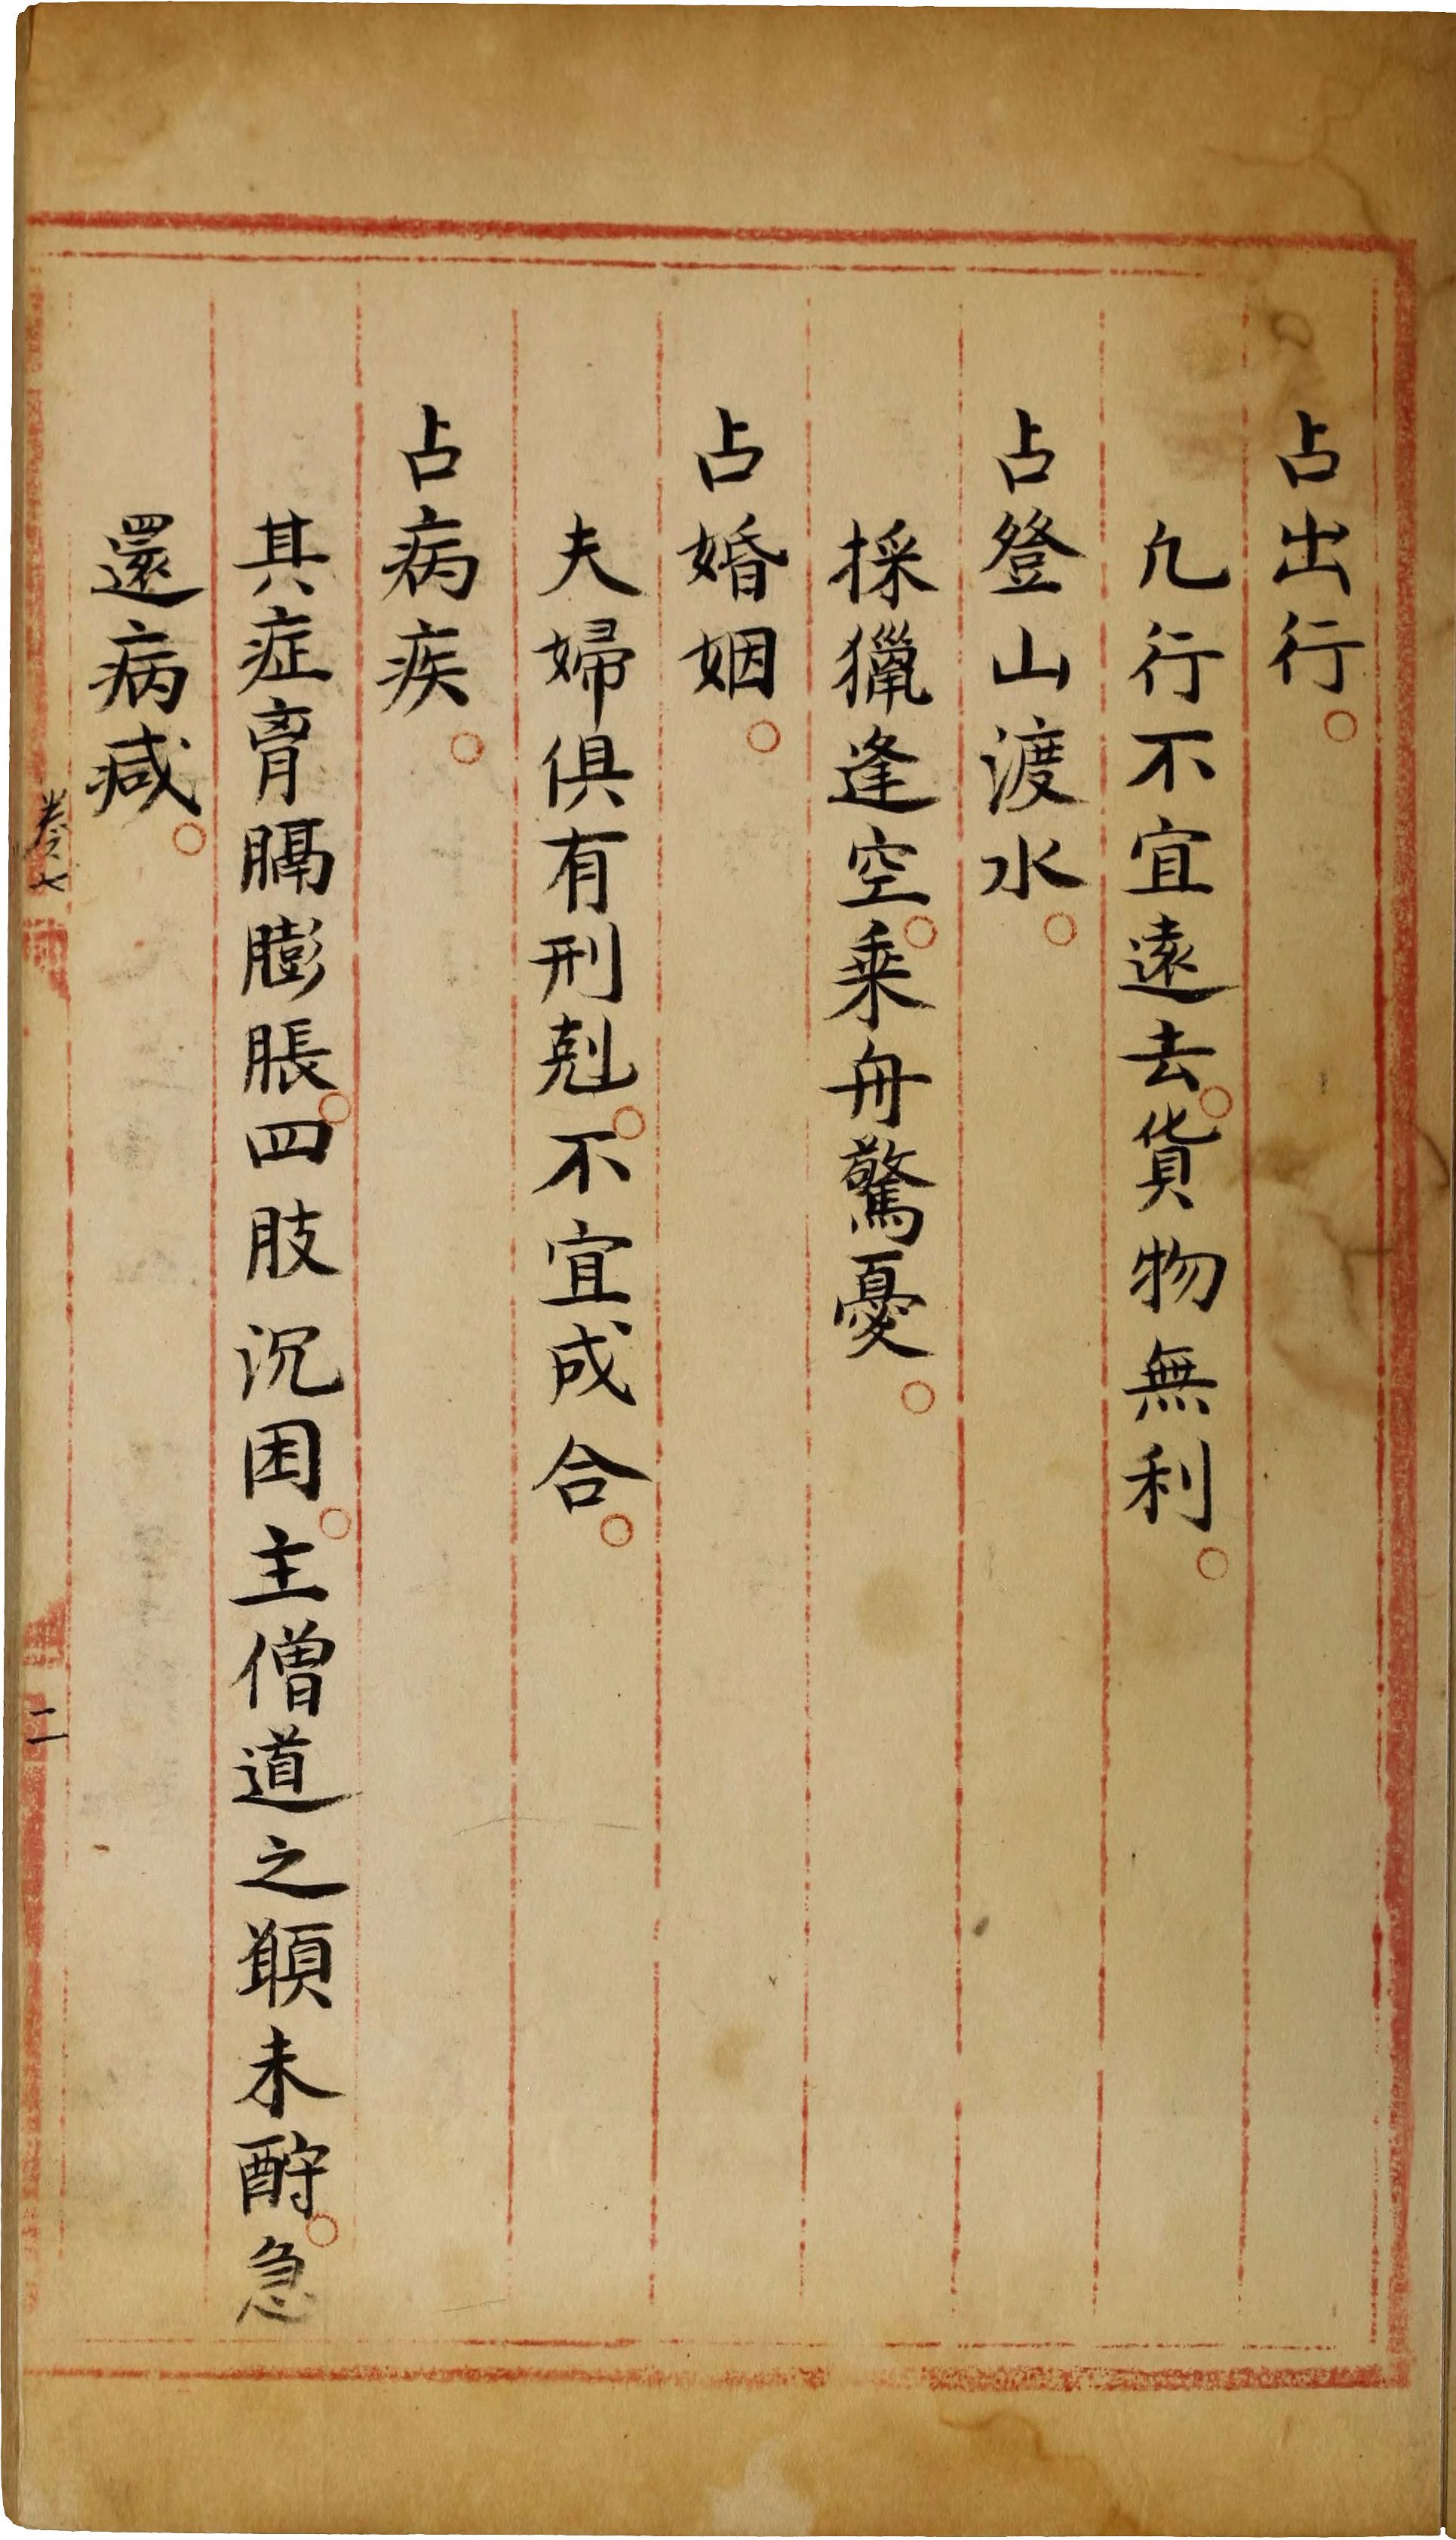 占出行。
凢行不宜遠去。貨物無利。
占登山渡水。
採獵逢空。乗舟驚憂。
占婚姻。
夫婦俱有刑剋。不宜成合。
占病疾。
其症肓膈膨脹。四肢沉困。主僧道之願未酧。急
還病减。
卷七
二